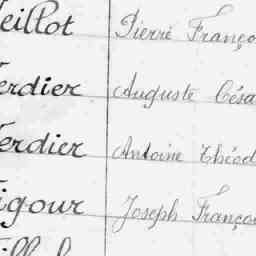 eillot Pierre Franço
erdier Auguste Césa
erdier Antoine Théod
igour Joseph Franço